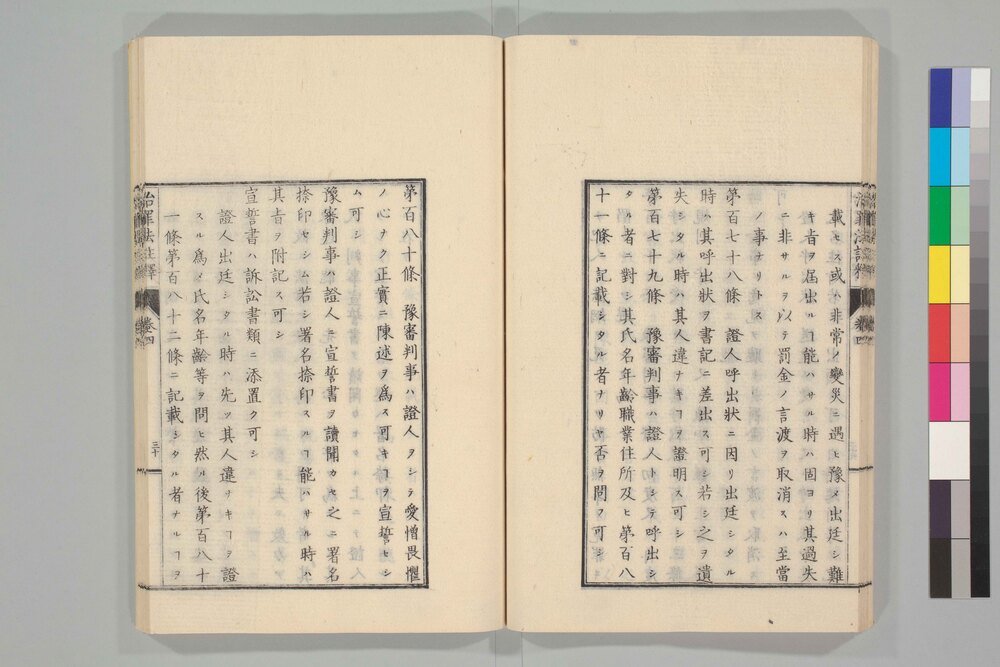 治罪法註釋 卷四
載セス或ハ非常ノ變災ニ遇ヒ豫メ出廷シ難
キ旨ヲ届出ルヿ能ハサル時ハ固ヨリ其過失
ニ非サルヲ以テ罰金ノ言渡ヲ取消スハ至當
ノ事ナリトス
第百七十八條 證人呼出狀ニ因リ出廷シタル
時ハ其呼出狀ヲ書記ニ差出ス可シ若シ之ヲ遺
失シタル時ハ其人違ナキヿヲ證明ス可シ
第百七十九條 豫審判事ハ證人トシテ呼出シ
タル者ニ對シ其氏名年齡職業住所及ヒ第百八
十一條ニ記載シタル者ナリヤ否ヲ問フ可シ
第百八十條 豫審判事ハ證人ヲシテ愛憎畏懼
ノ心ナク正實ニ陳述ヲ爲ス可キヿヲ宣誓セシ
ム可シ
豫審判事ハ證人ニ宣誓書ヲ讀聞カセ之ニ署名
捺印セシム若シ署名捺印スルヿ能ハサル時ハ
其旨ヲ附記ス可シ
宣誓書ハ訴訟書類ニ添置ク可シ
證人出廷シタル時ハ先ツ其人違ヲキヿヲ證
スル爲メ氏名年齡等ヲ問ヒ然ル後第百八十
一條第百八十二條ニ記載シタル者ナルヿヲ
治罪法註釋 卷四 三十